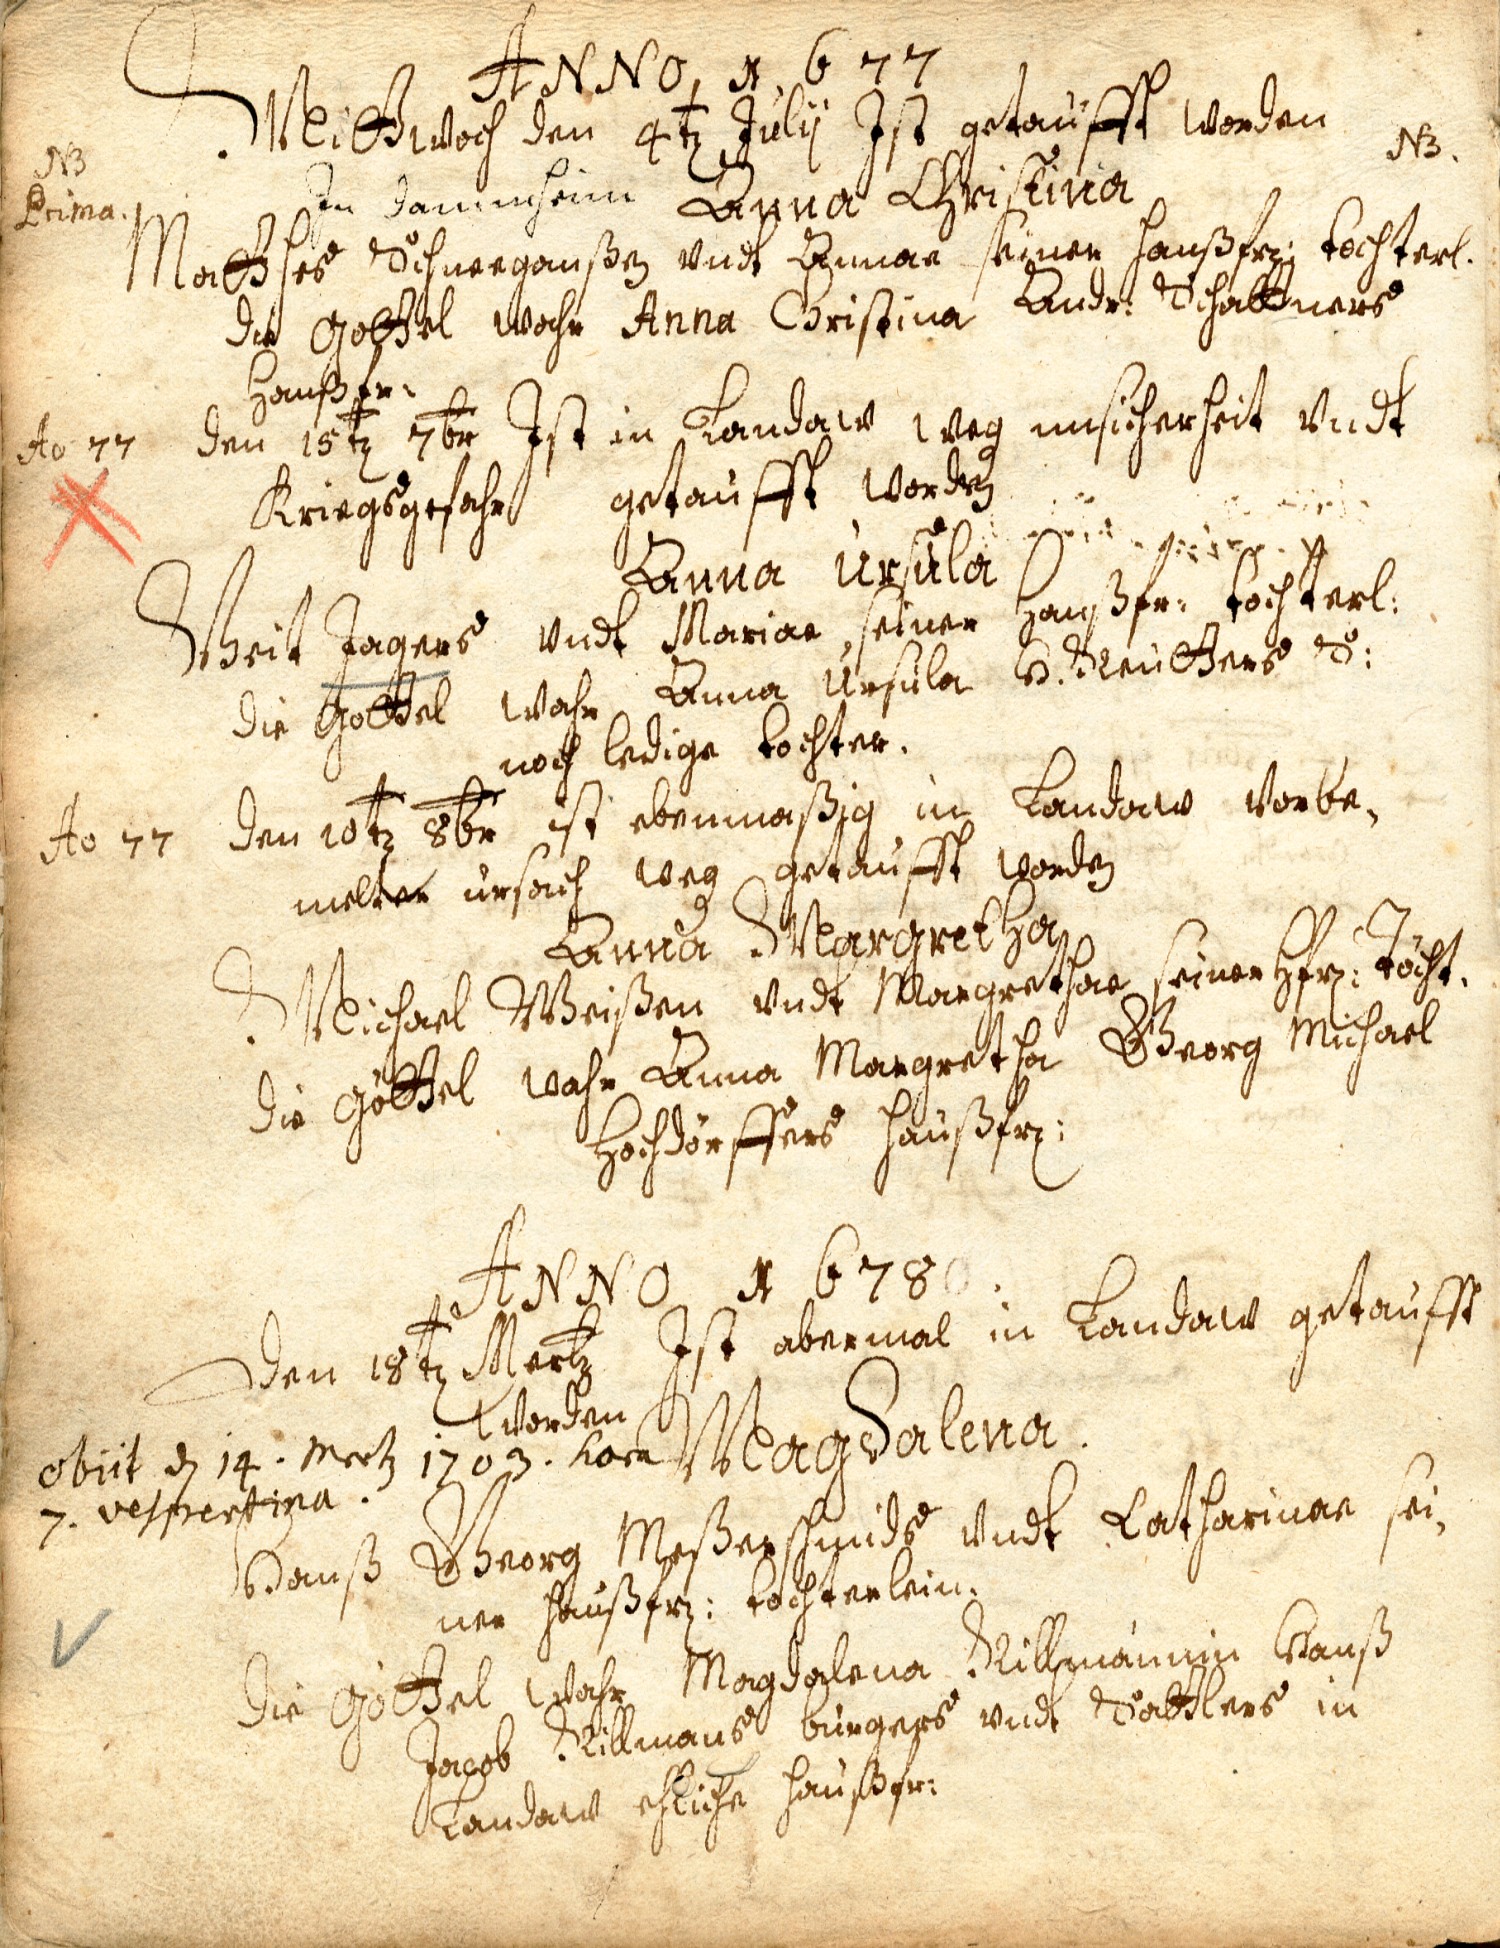 ANNO, 1677
Mittwoch den 4t. Julÿ Ist getaufft worden
NB
NB.
Prima.
In Dammheim Anna Christina
Matthes Schneeganßen vndt Annae seiner haußfr: tochterl.
die Gottel wahr Anna Christina Andr: Schattners
haußfr:
Ao 77 den 15t. 7br Ist in Landaw weg unsicherheit vndt
Kriegsgefahr getaufft worden
Anna Ursula
Veit Jagers vndt Mariae seiner Haußfr: tochterl:
die Gottel wahr Anna Ursula H. Reutters S:
noch ledige tochter.
Ao 77 den 10t. 8br ist ebenmaßig in Landaw vorbe,
melter ursach weg getaufft worden
Anna Margretha
Michael Weißen vndt Margrethae seiner Hfr: Töcht.
die Göttel wahr Anna Margretha Georg Michael
Hochdörffers haußfr:
ANNO 1678
Den 18t. Mertz Ist abermal in Landaw getaufft
worden
Obiit d 14. Mertz 1703. hora Magdalena.
7. vespertina.
Hanß Georg Meßerschmids vndt Catharinae sei,
ner haußfr: tochterlein.
Die Göttel wahr Magdalena Killmännin Hanß
Jacob Killmans burgers vndt Sattlers in
Landaw ehliche haußfr: